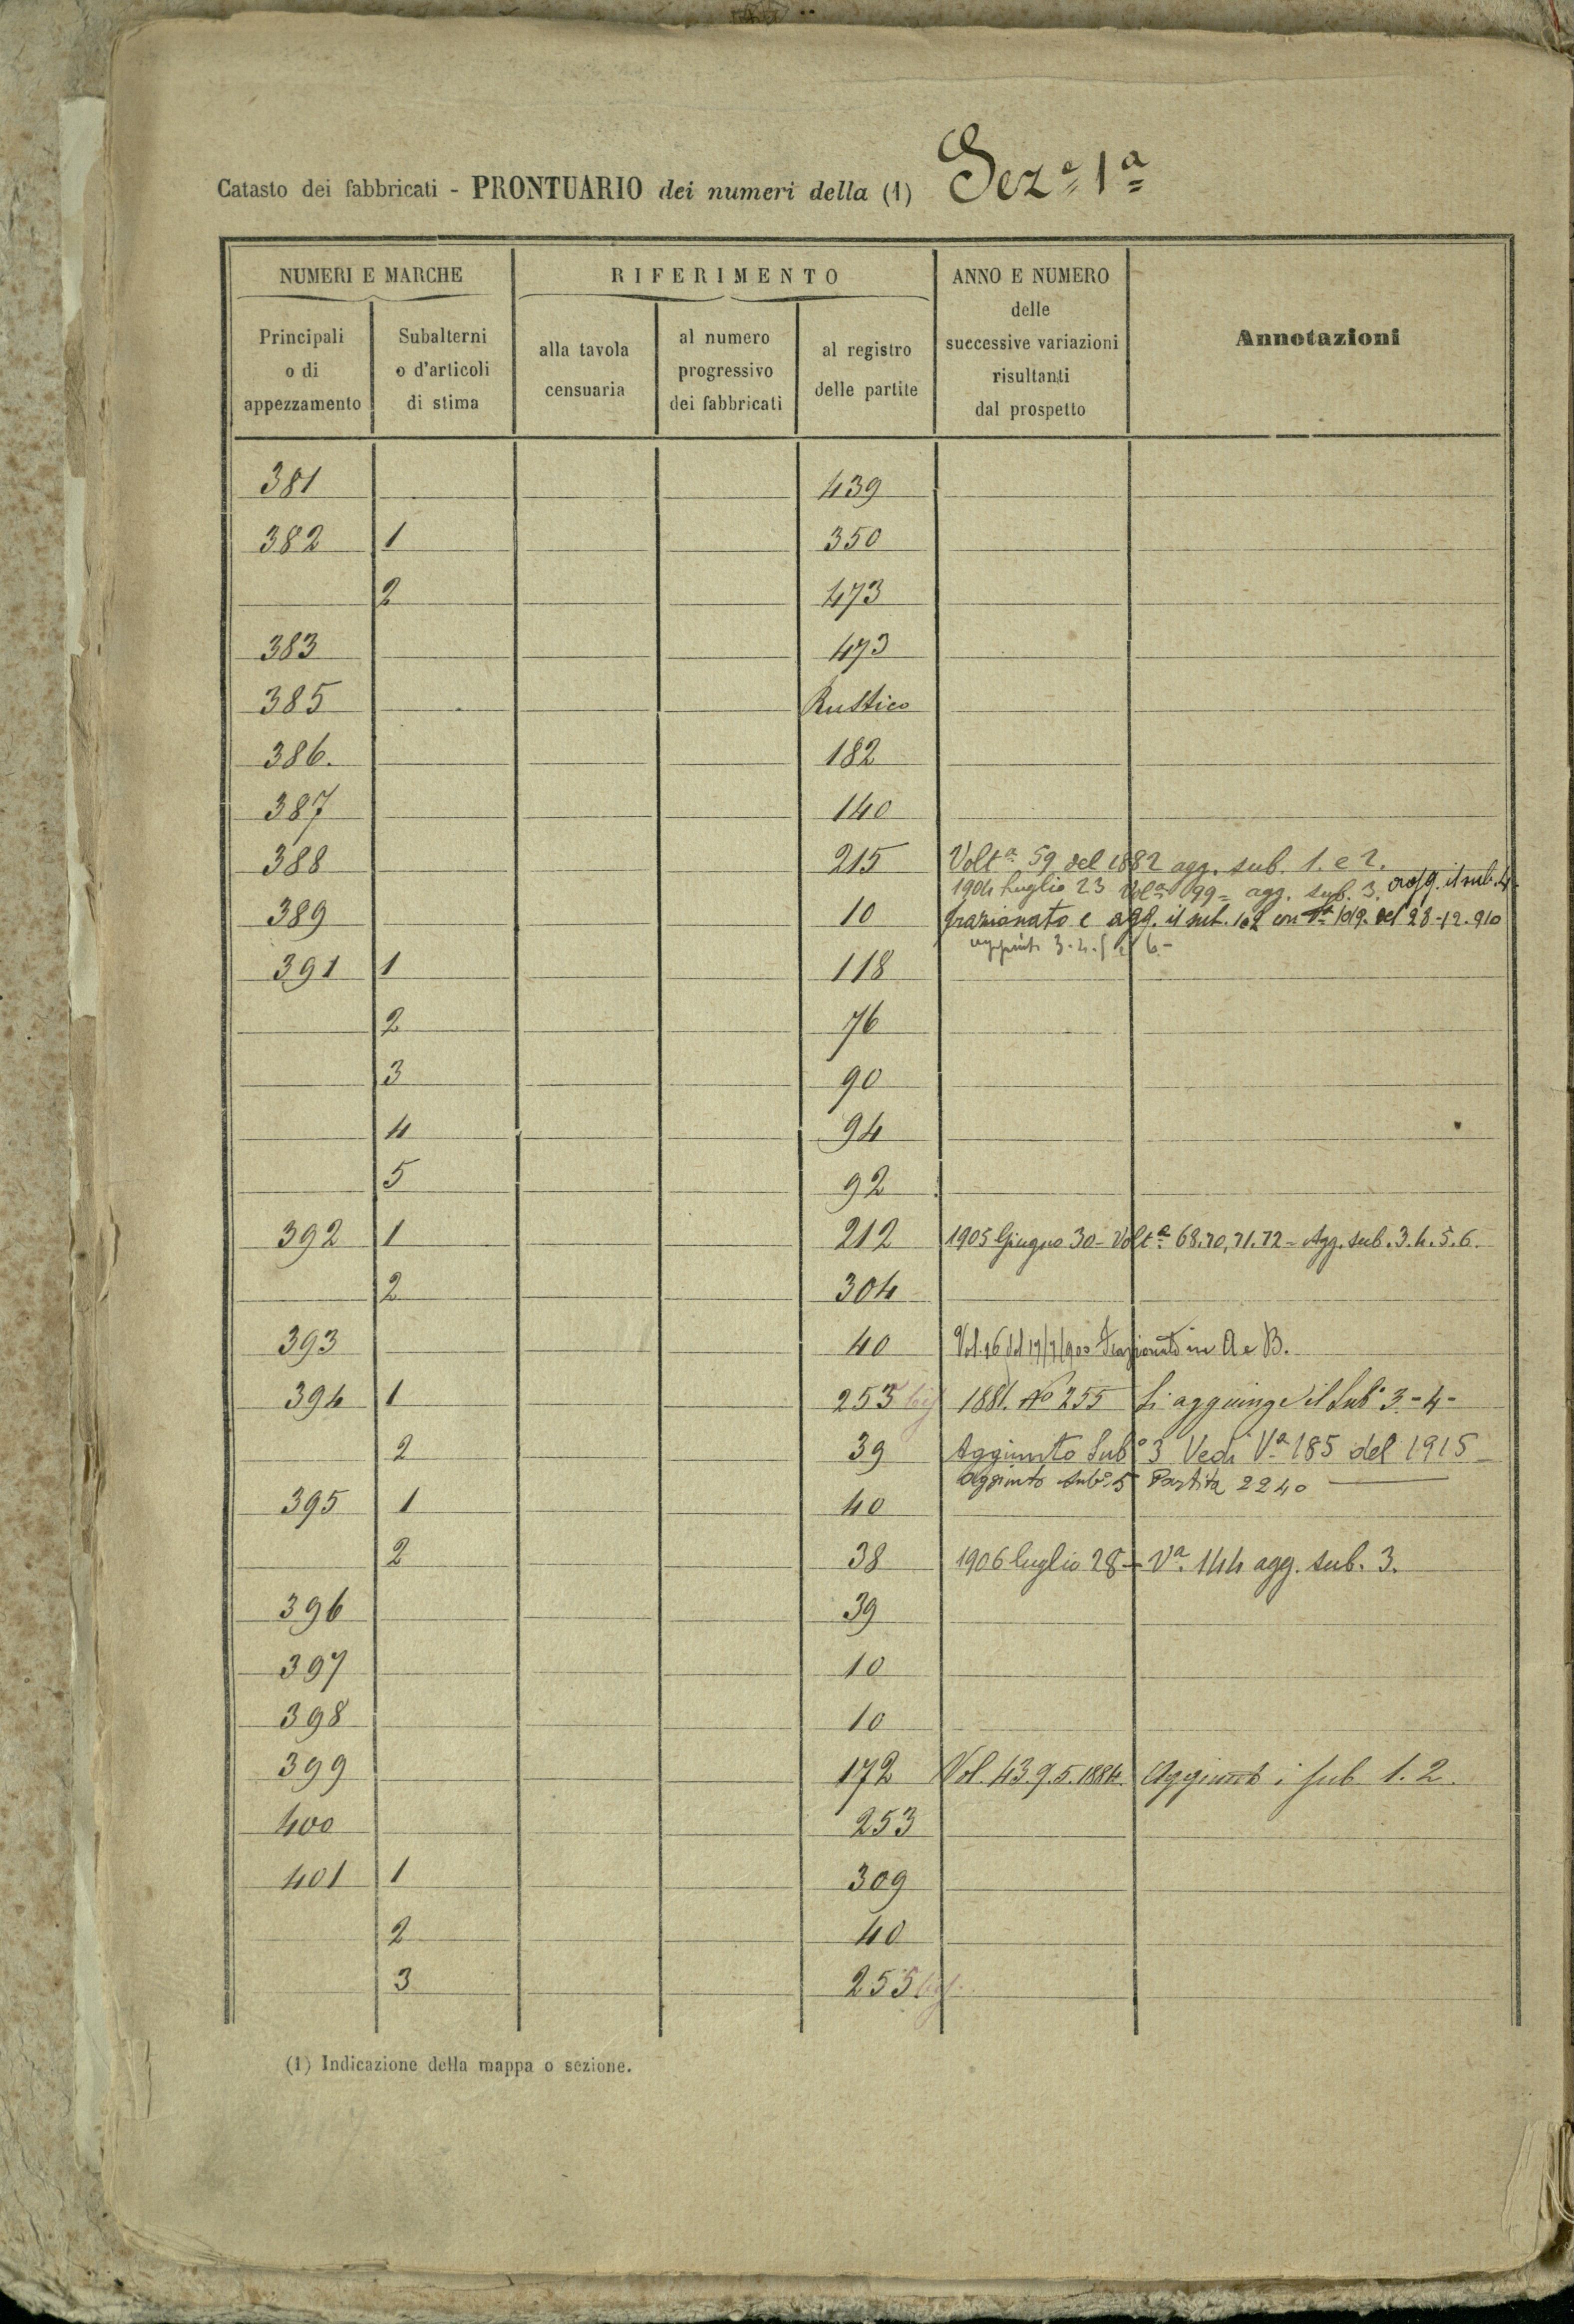 Catasto dei fabbricati - PRONTUARIO dei numeri della (1) Sez.e 1a
NUMERI E MARCHE
RIFERIMENTO
ANNO E NUMERO
delle
successive variazioni
risultanti
dal prospetto
Annotazioni
Principali
o di
appezzamento
Subalterni
o d'articoli
di stima
alla tavola
censuaria
al numero
progressivo
dei fabbricati
al registro
delle partite
381 439
382 1 350
2 473
383 473
385 Rustico
386. 182
387 140
388 215 Volt.a 59 del 1882 agg. sub. 1. e 2.
1904 Luglio 23 Vol.a 99 = agg. sub. 3. agg. il sub. 4.
389 10 frazionato e agg. il sub. 1 e 2 con del 23-12-910
3. 4. 5 e 6 -
391 1 118
2 76
3 90
4 94
5 92
392 1 212 1905 Giugno 30 - Volt.a 68.70.71.72 - Agg. sub. 3.4.5.6.
2 304
393 40 Vol. 16 del frazionato in A e B.
394 1 253 bis 1881. No 255 Si aggiunge il Sub.o 3.- 4 -
2 39 Aggiunto Sub.o 3 Vedi V.a 185 del 1915
aggiunto sub.o 5 Partita 2240
395 1 40
2 38 1906 luglio 28 - V.a 144 agg. sub. 3.
396 39
397 10
398 10
399 172 Vol. 43.9.5.1884. Aggiunti i sub 1. 2.
400 253
401 1 309
2 40
3 255 bis
(1) Indicazione della mappa o sezione.